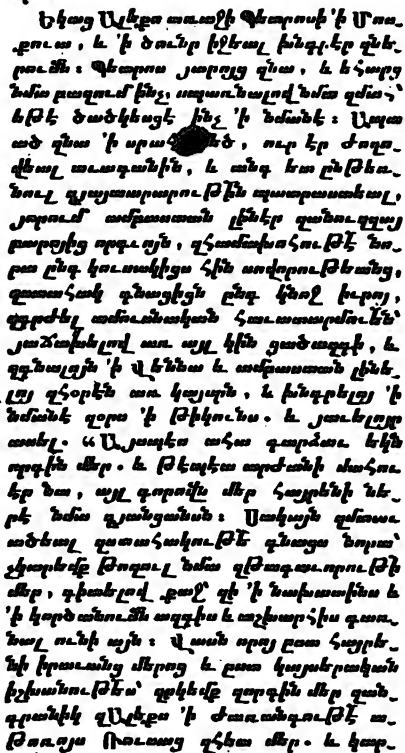 Եկաց Ալեքս առաջի Պետրոսի 'ի Մոս_
քուա, և 'ի ծունր իջեալ խնդրէր զնե_
րումն։ Պետրոս յարոյց զնա, և եհարց
նմա բազում ինչ, սպառնալով նմա զմահ՝
եթէ ծածկեսցէ ինչ 'ի նմանէ։ Ապա
ած զնա 'ի սրահ մեծ, ուր էր ժողո_
վեալ աւագանին, և անդ ետ ընթեռ_
նուլ զյայտարարութին պատրաստեալ,
յորում ամբաստան լինէր զանուղղայ
բարոյից որդւոյն, զհամախոհութէ նո_
րա ընդ կուսակիցս հին սովորութեանց,
զառհակ գնացիցն ընդ կնոջ իւրոյ,
զդրժել ամուսնական հաւատարմունե՝
յաճախելով առ այլ կին ցածազգի, և
զգնալոյն 'ի Վեննա և ամբաստան լինե_
լոյ զհօրէն առ կայսրն, և խնդրելոյ 'ի
նմանէ զօրս 'ի թիկունս. և յաւելոյր
ասել. «Այսպէս ահա դարձաւ եկն
որդին մեր. և թէպէտ արժանի մահու
էր նա, այլ գորովն մեր հայրենի նե_
րէ նմա զյանցանսն։ Սակայն զմտաւ
ածեալ զատակութի գնացս նորա՝
չկարեմք թողուլ նմա զթագաւորութի
մեր, գիտելով քաջ՝ զի 'ի նախատինս և
'ի կործանումն ազգիս և աշխարհիս դառ_
նալ ունի այն։ Վասն որոյ ըստ հայրե_
նի իրաւանց մերոց և ըստ կայսերական
իշխանութես՝ զրկեմք զորդին մեր զան_
դրանիկ զԱլեքս 'ի ժառանգութէ ա_
թոռոյս Ռուսաց զհետ մեր. և կար_